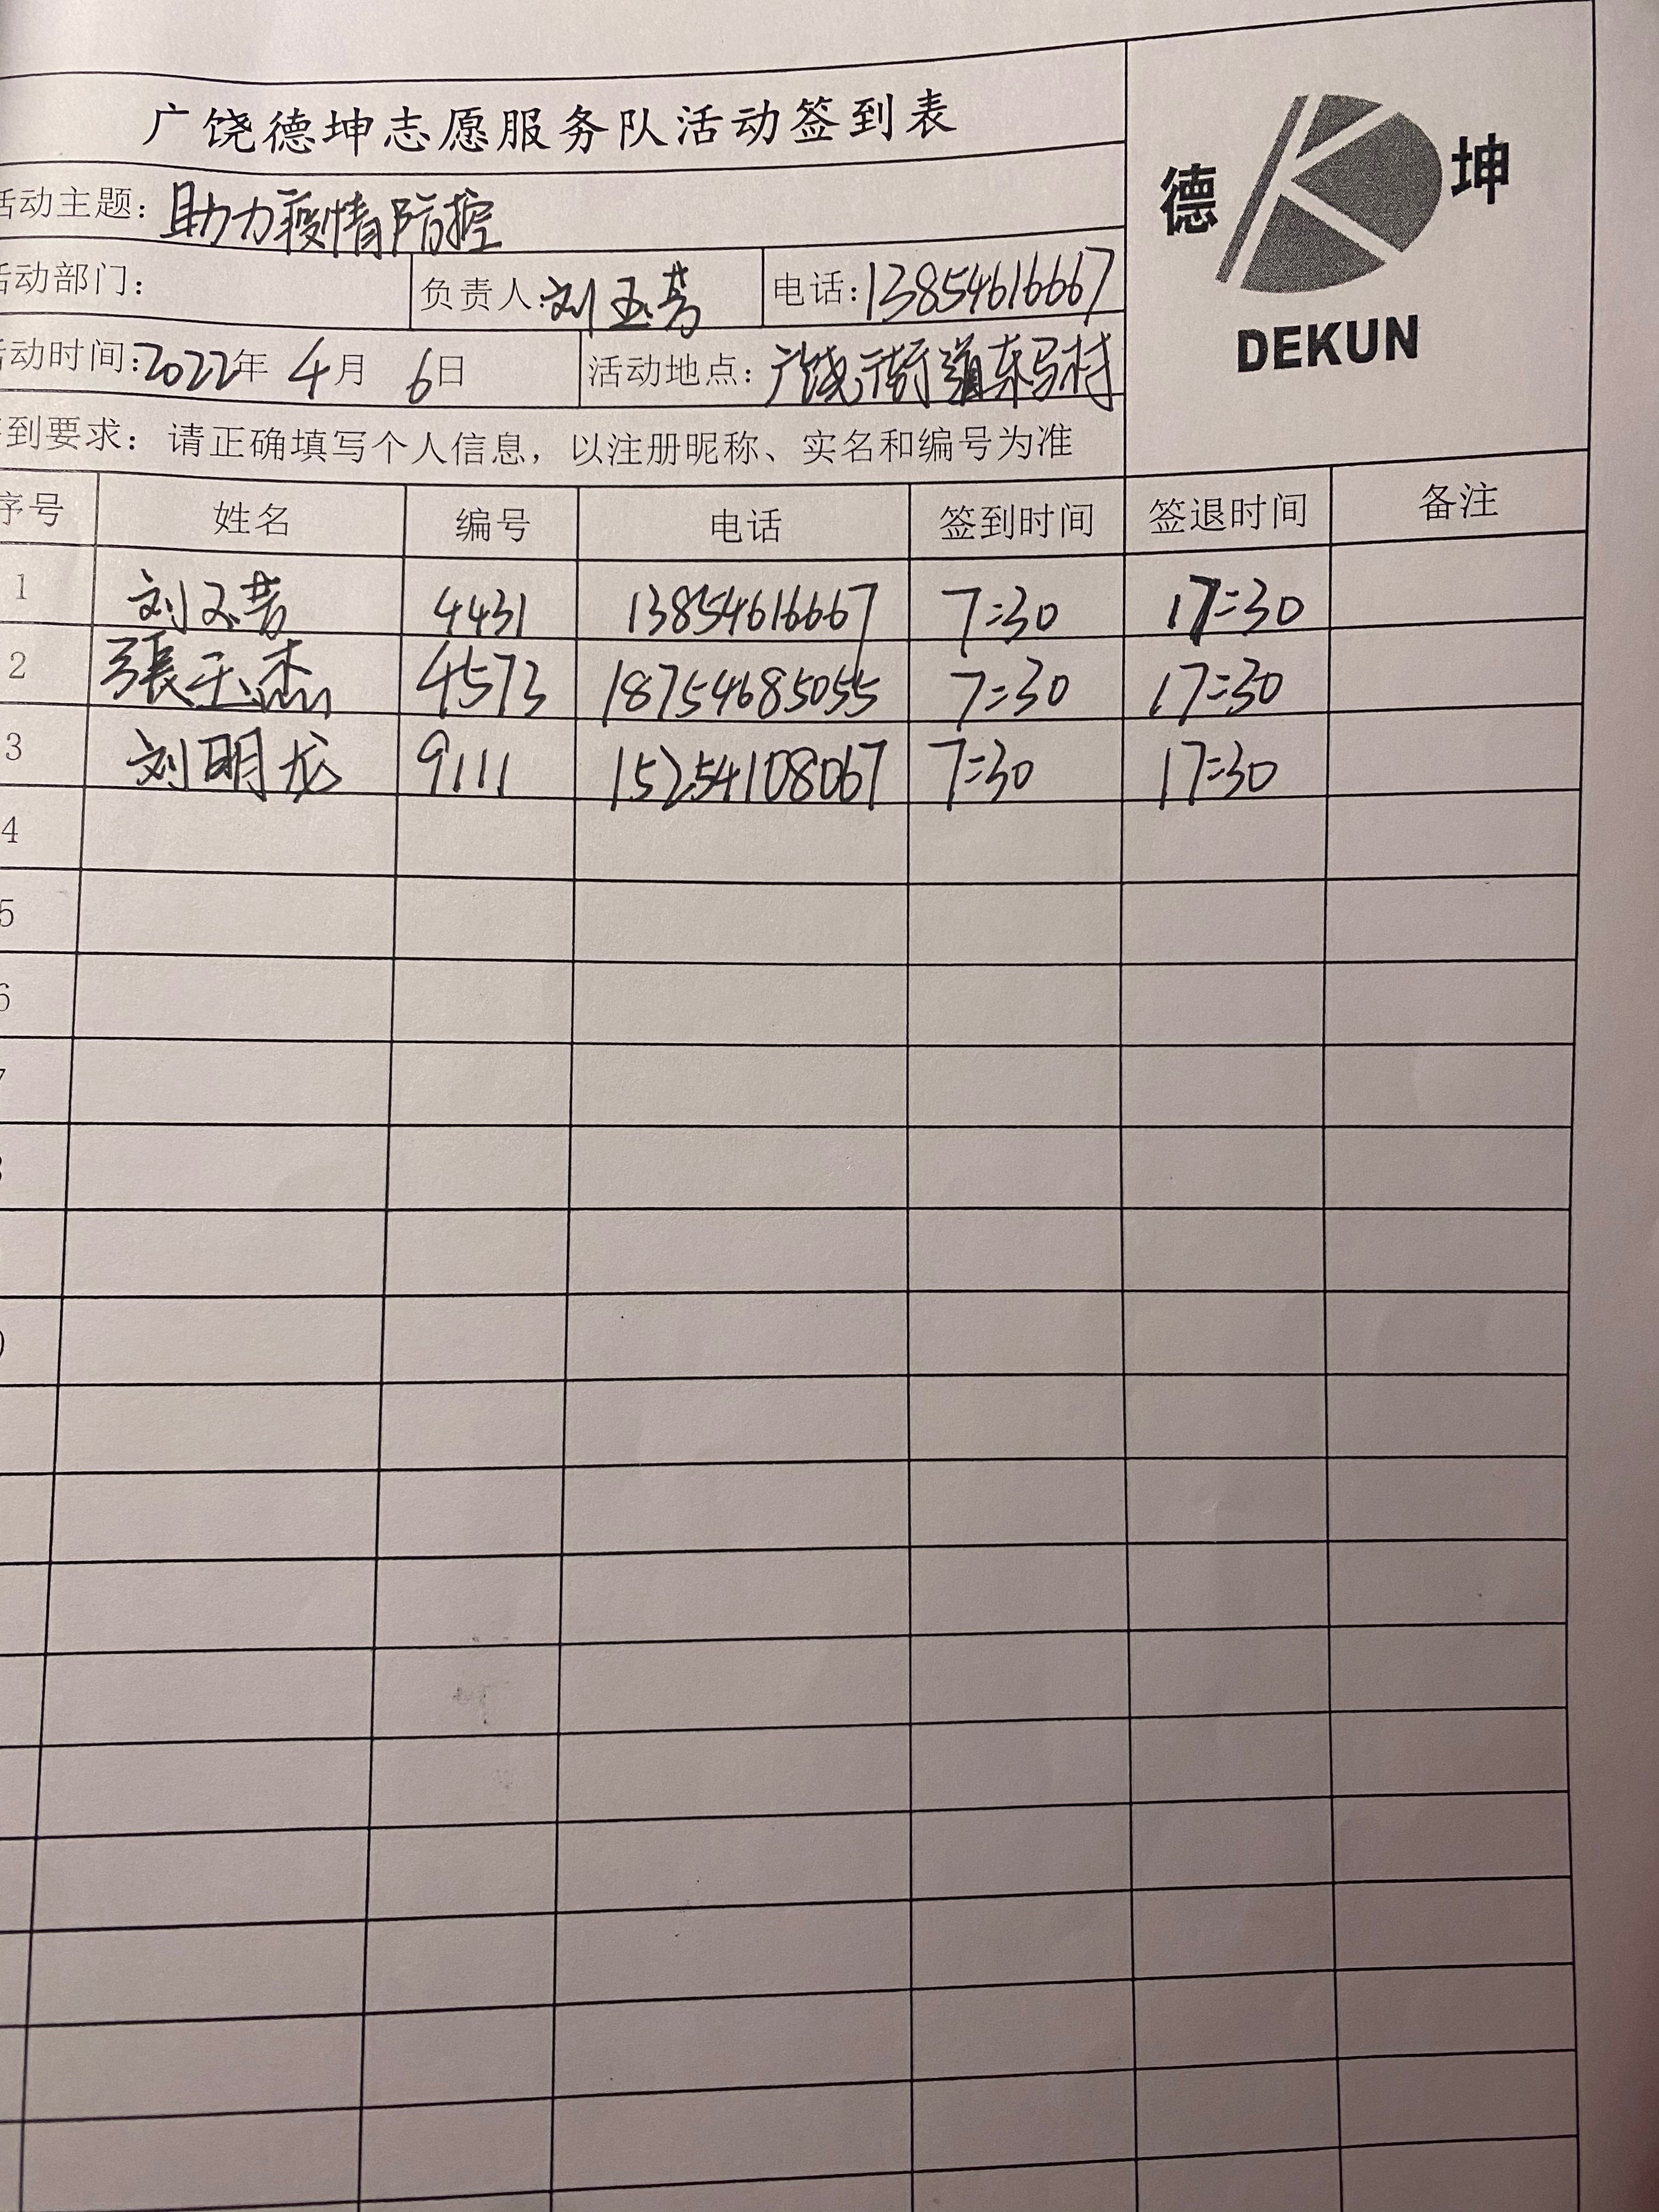 广饶德坤志愿服务队活动签到表
德 坤
DEKUN
活动主题：助力疫情防控
活动部门： 负责人：刘玉芳 电话：13854616667
活动时间：2022年 4月 6日 活动地点：广饶街道东马村
签到要求：请正确填写个人信息，以注册昵称、实名和编号为准
序号 姓名 编号 电话 签到时间 签退时间 备注
1 刘玉芳 4431 13854616667 7:30 17:30
2 張玉杰 4573 18754685055 7:30 17:30
3 刘明龙 9111 15254108067 7:30 17:30
4
5
6
7
8